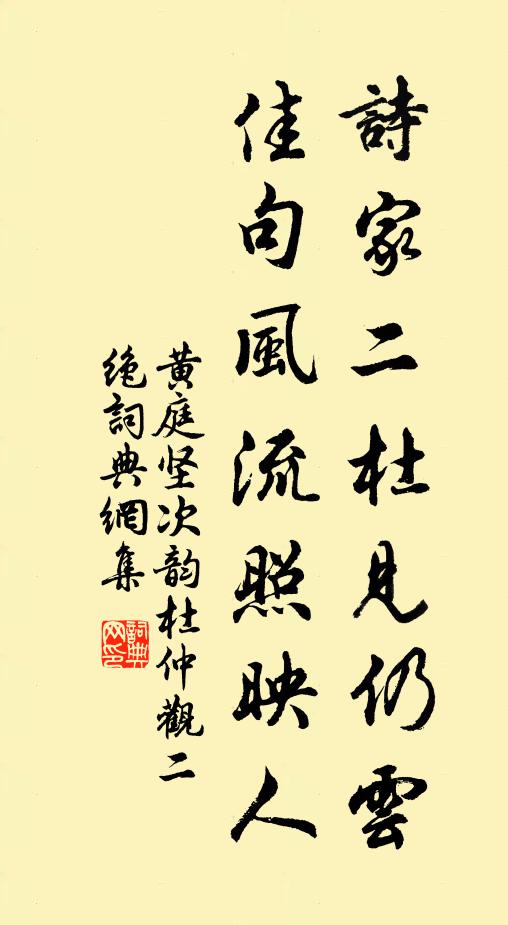 詩家二杜見仍雲
佳句風流照映人
黃庭坚次韵杜仲觀二
绝詞典網集
詞典
网印